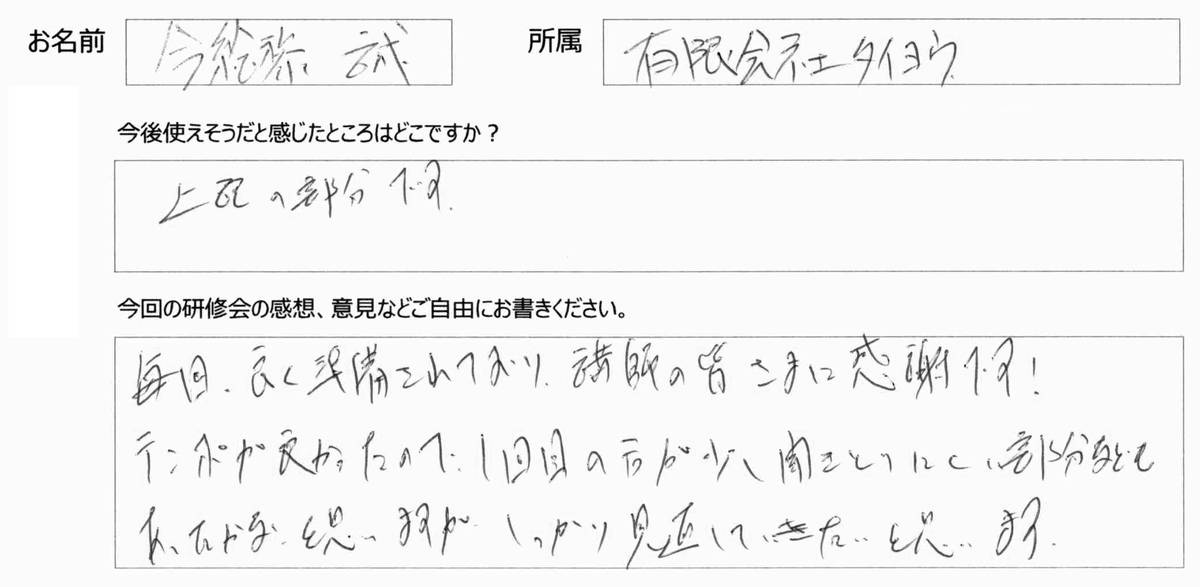 お名前 今給黎 誠 所属 有限会社タイヨウ
今後使えそうだと感じたところはどこですか?
上記の部分です.
今回の研修会の感想、意見などご自由にお書きください。
毎回、良く準備されており、講師の皆さまに感謝です!
テンポが良かったので、1回目の方が少し聞きとりにくい部分なども
あったかな、と思いますが、しっかり見直していきたいと思います.